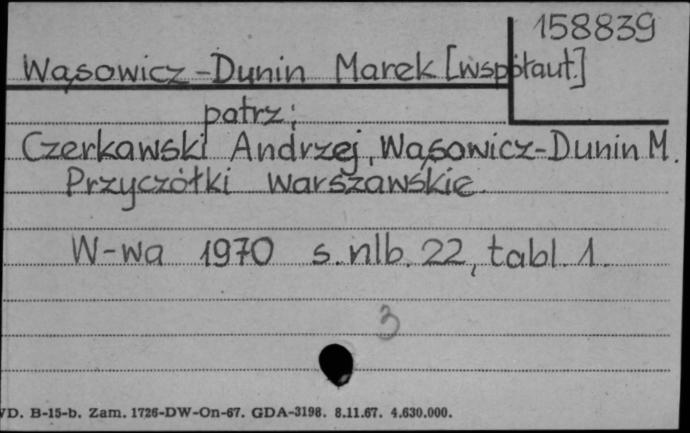 158839
Wąsowicz-Dunin Marek [współaut.]
patrz:
Czerkawski Andrzej, Wąsowicz-Dunin M.
Przyczółki warszawskie.
W-wa 1970 s. nlb. 22, tabl. 1.
3
VD. B-15-b. Zam. 1726-DW-On-67. GDA-3198. 8.11.67. 4.630.000.